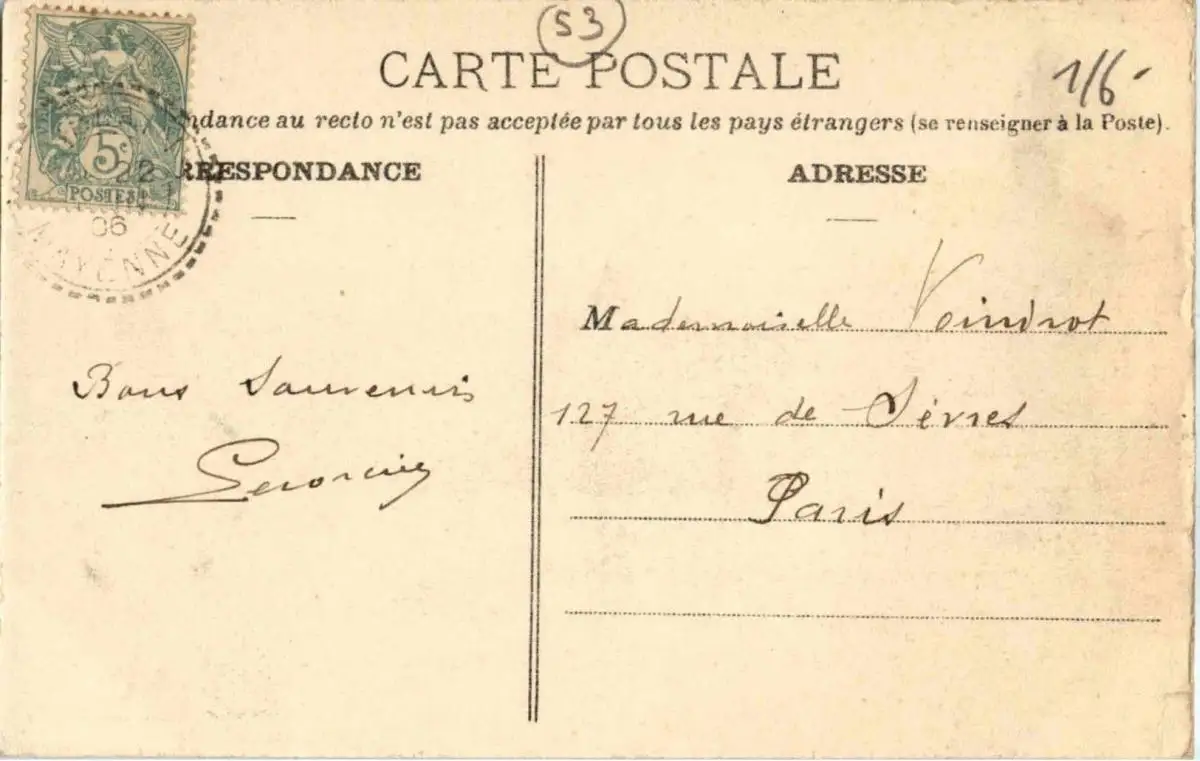 53
CARTE POSTALE
1/6-
ndance au recto n'est pas acceptée par tous les pays étrangers (se renseigner à la Poste).
RRESPONDANCE
ADRESSE
5c
POSTES
22
06
MAYENNE
Mademoiselle Voindrot
127 rue de Sèvres
Paris
Bons Souvenirs